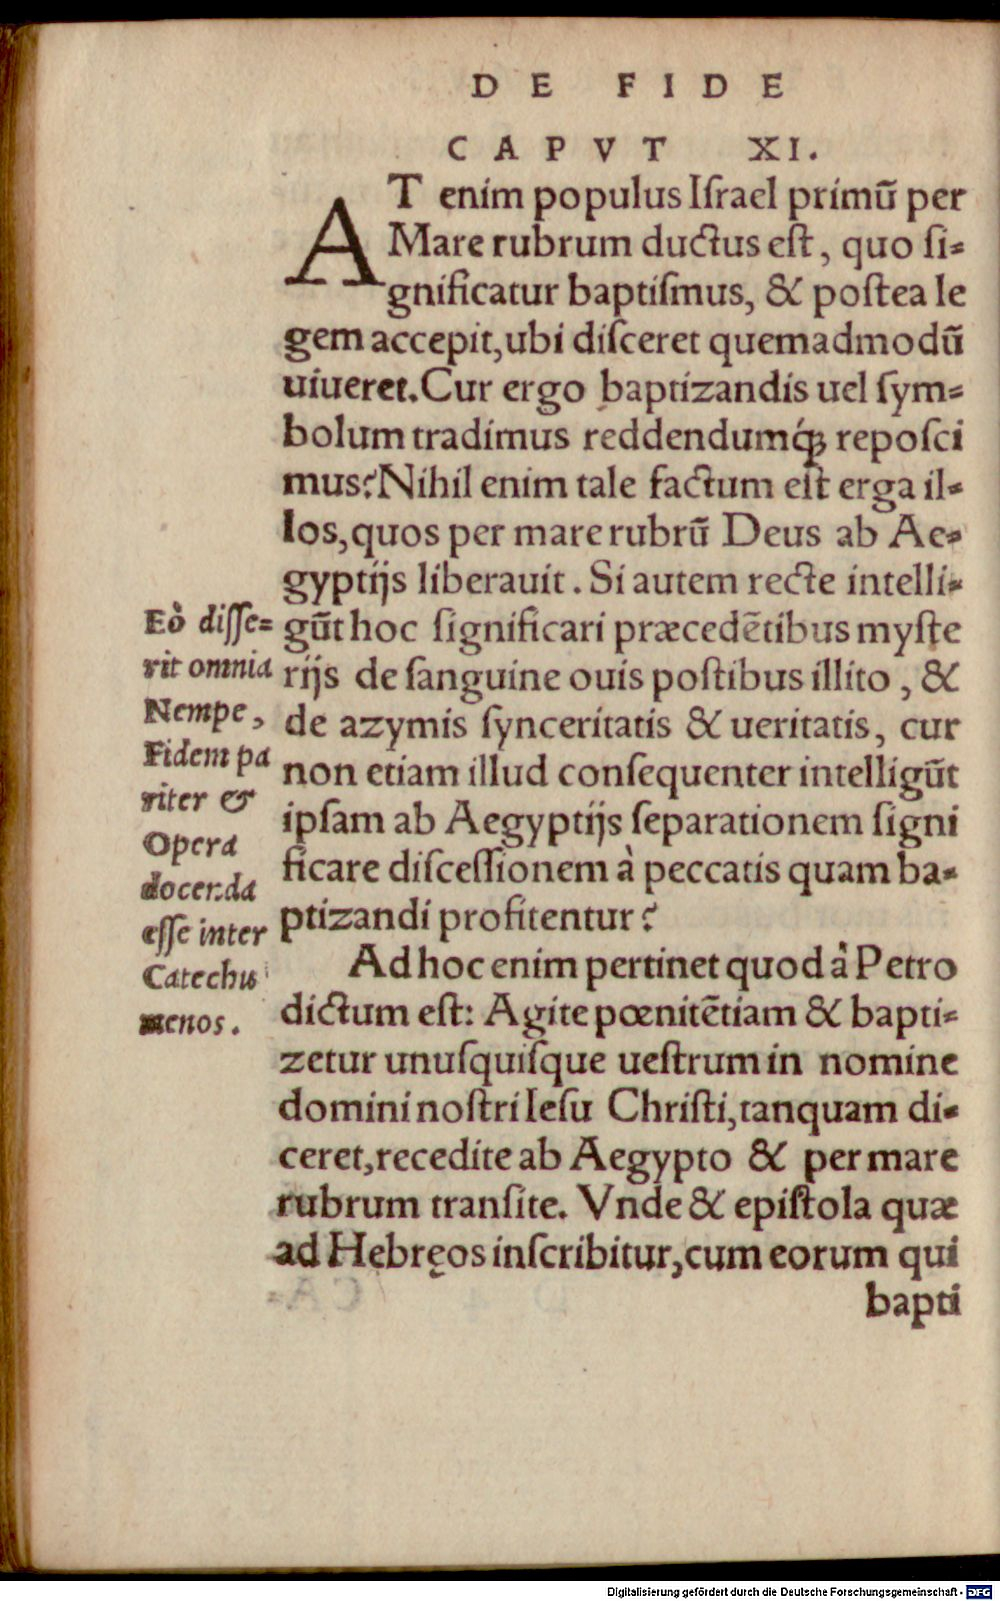 DE FIDE
CAPVT XI.
AT enim populus Iſrael primũ per
Mare rubrum ductus eſt, quo ſi-
gnificatur baptiſmus, & poſtea le
gem accepit, ubi diſceret quemadmodũ
uiueret. Cur ergo baptizandis uel ſym-
bolum tradimus reddendumq́ꝫ repoſci
mus? Nihil enim tale factum eſt erga il-
los, quos per mare rubrũ Deus ab Ae-
gyptijs liberauit. Si autem recte intelli-
gũt hoc ſignificari præcedẽtibus myſte
rijs de ſanguine ouis poſtibus illito, &
de azymis ſynceritatis & ueritatis, cur
non etiam illud conſequenter intelligũt
ipſam ab Aegyptijs ſeparationem ſigni
ficare diſceſſionem à peccatis quam ba-
ptizandi profitentur?
Ad hoc enim pertinet quod à Petro
dictum eſt: Agite pœnitẽtiam & bapti-
zetur unuſquiſque ueſtrum in nomine
domini noſtri Ieſu Chriſti, tanquam di-
ceret, recedite ab Aegypto & per mare
rubrum tranſite. Vnde & epiſtola quæ
ad Hebręos inſcribitur, cum eorum qui
bapti
Eò diſſe-
rit omnia
Nempe,
Fidem pa
riter &
Opera
docenda
eſſe inter
Catechu
menos.
Digitalisierung gefördert durch die Deutsche Forschungsgemeinschaft - DFG